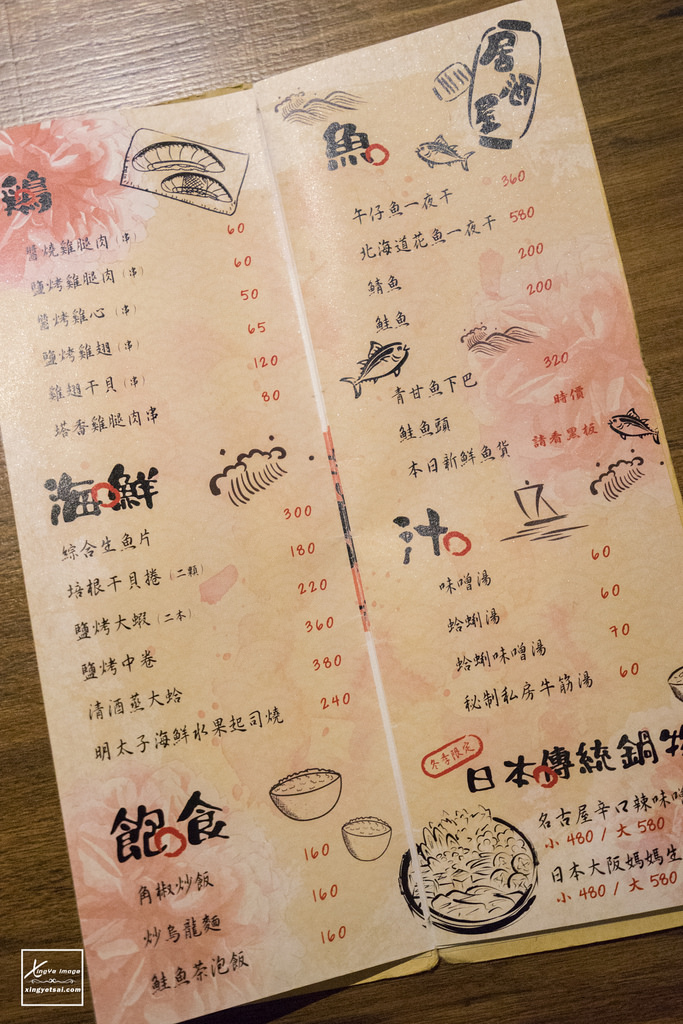 鷄
醬燒雞腿肉(串) 60
鹽烤雞腿肉(串) 60
醬烤雞心(串) 50
鹽烤雞翅(串) 65
雞翅干貝(串) 120
塔香雞腿肉串 80
海の鮮
綜合生魚片 300
培根干貝捲(二顆) 180
鹽烤大蝦(二本) 220
鹽烤中卷 360
清酒蒸大蛤 380
明太子海鮮水果起司燒 240
飽の食
角椒炒飯 160
炒烏龍麵 160
鮭魚茶泡飯 160
居酒屋
魚
午仔魚一夜干 360
北海道花魚一夜干 580
鯖魚 200
鮭魚 200
青甘魚下巴 320
鮭魚頭 時價
本日新鮮魚貨 請看黑板
汁
味噌湯 60
蛤蜊湯 60
蛤蜊味噌湯 70
秘制私房牛筋湯 60
冬季限定
日本の傳統鍋物
名古屋辛口辣味噌
小 480 / 大 580
日本大阪媽媽生
小 480 / 大 580
XingYe Image
xingyetsai.com